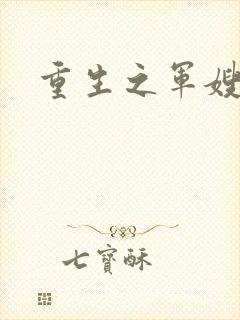 重生之军嫂
七寶酥